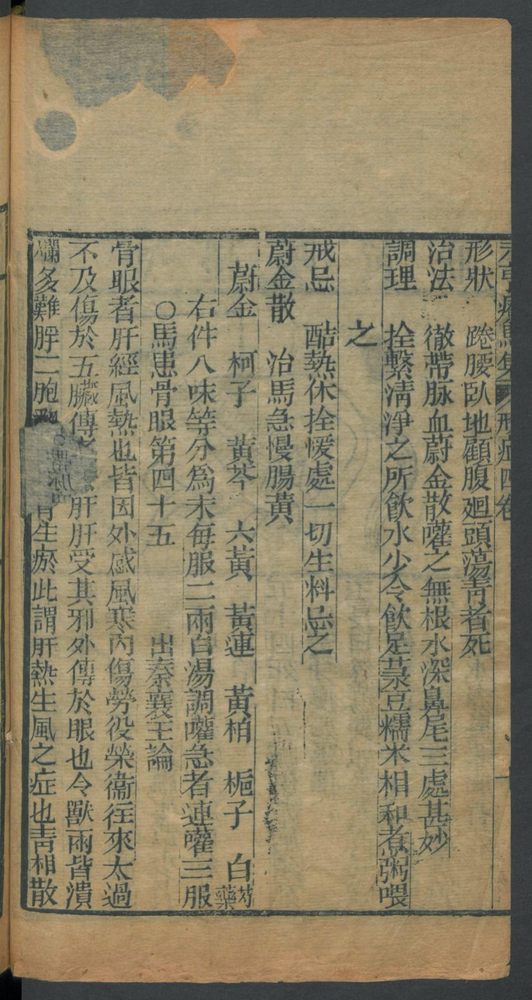 元亨療馬集 形症四卷
形狀 蹺腰臥地顧腹廻頭蕩靑者死
治法 徹帶脉血蔚金散嚾之無根水深鼻尾三處甚妙
調理 拴繫淸淨之所飲水少令飲足菉豆糯米相和煮粥喂
之
戒忌 酷熱休拴煖處一切生料忌之
蔚金散 治馬急慢腸黃
蔚金 柯子 黃芩 六黃 黃連 黃栢 梔子 白芍藥
右件八味等分爲末每服二兩白湯調嚾急者連嚾三服
○馬患骨眼第四十五 出秦襄王論
骨眼者肝經風熱也皆因外感風寒內傷勞役榮衞往來太過
不及傷於五臟傳 肝肝受其邪外傳於眼也令獸兩皆潰
爛多難睜二胞 骨生瘀此謂肝熱生風之症也靑相散